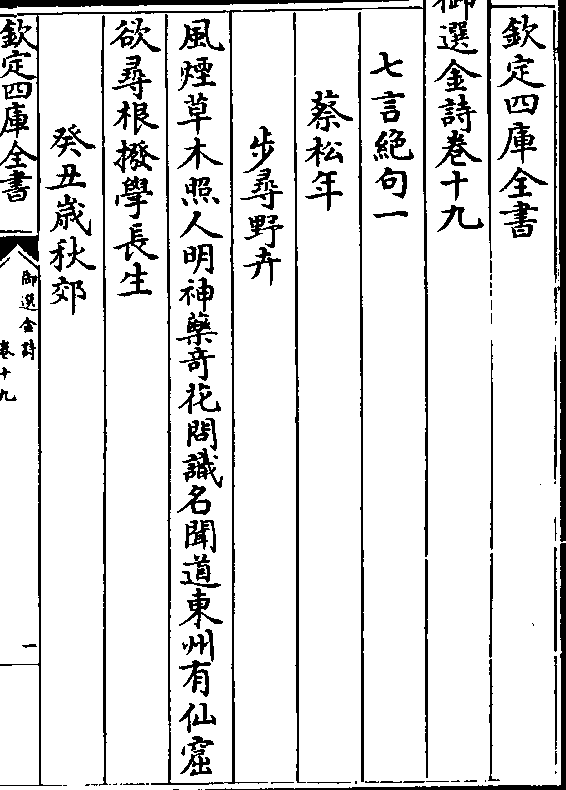 欽定四庫全書
御選金詩卷十九
七言絶句一
蔡松年
步尋野卉
風煙草木照人明神藥竒花問識名聞道東州有仙窟
欲尋根撥學長生
癸丑歳秋郊
欽定四庫全書
御選金詩
卷十九
一